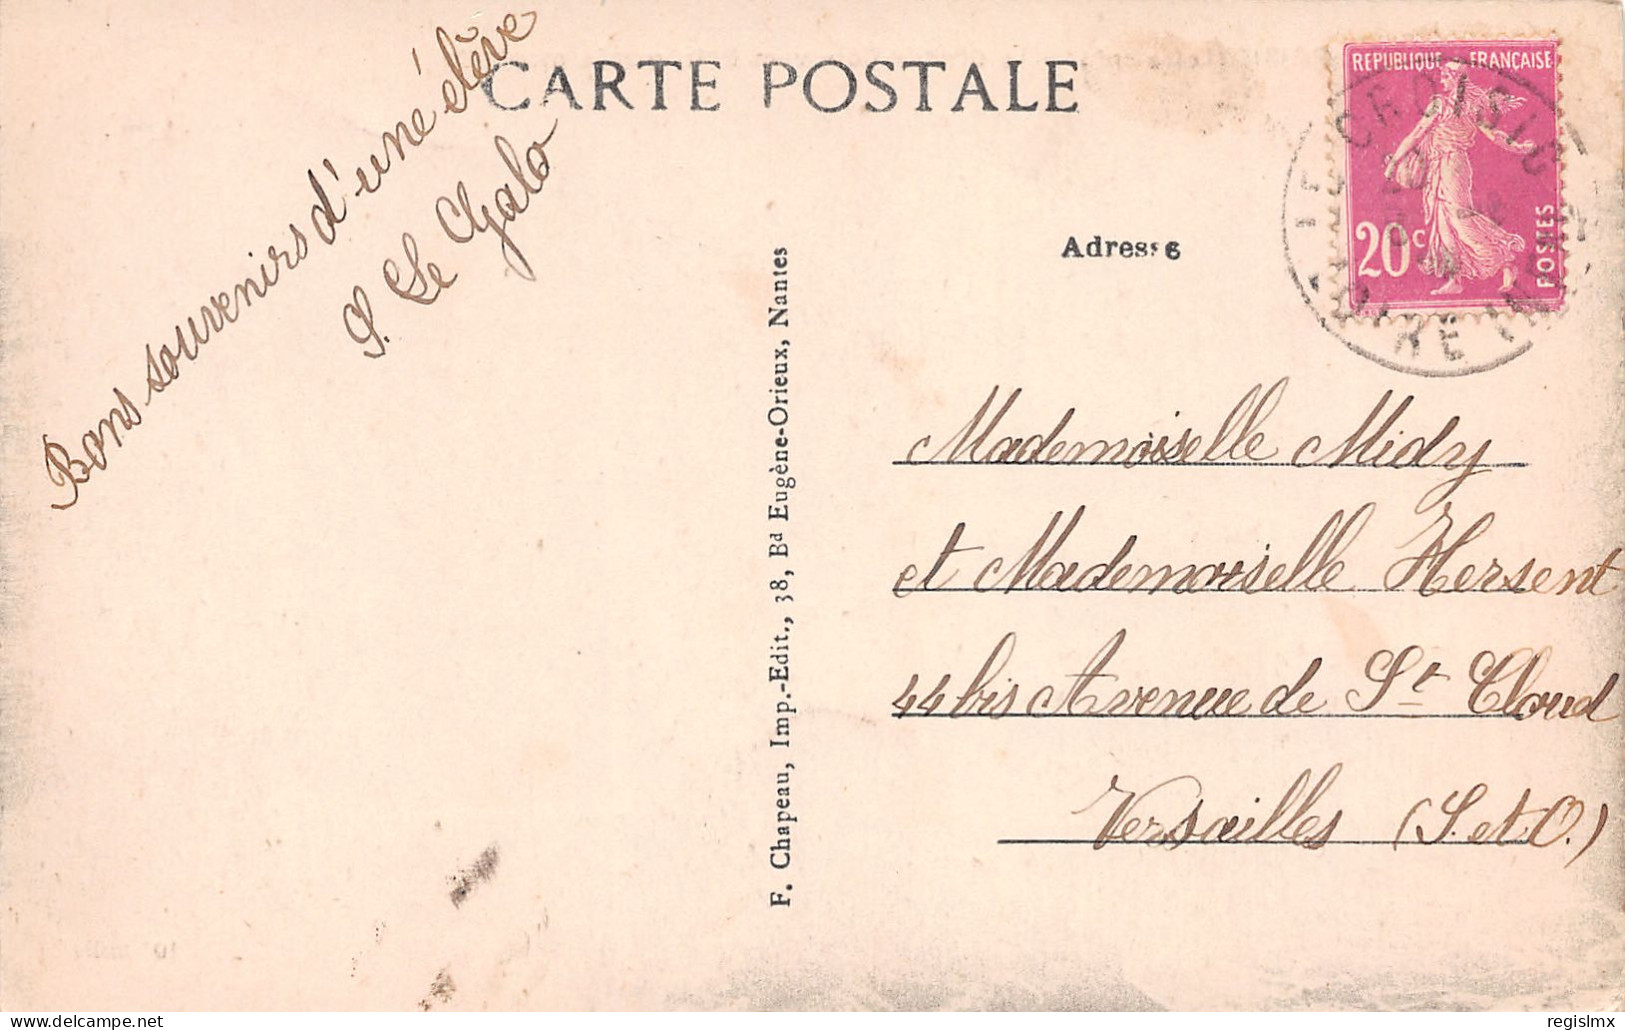 CARTE POSTALE
Bons souvenirs d'une élève
S. Le Chalo
REPUBLIQUE FRANÇAISE
20c
POSTES
LE CROISIC
LOIRE INFRE
Adresse
F. Chapeau, Imp.-Edit., 38, Bd Eugène-Orieux, Nantes
Mademoiselle Midy
et Mademoiselle Hersent
44 bis Avenue de St Cloud
Versailles (S. et O.)
regislmx © delcampe.net